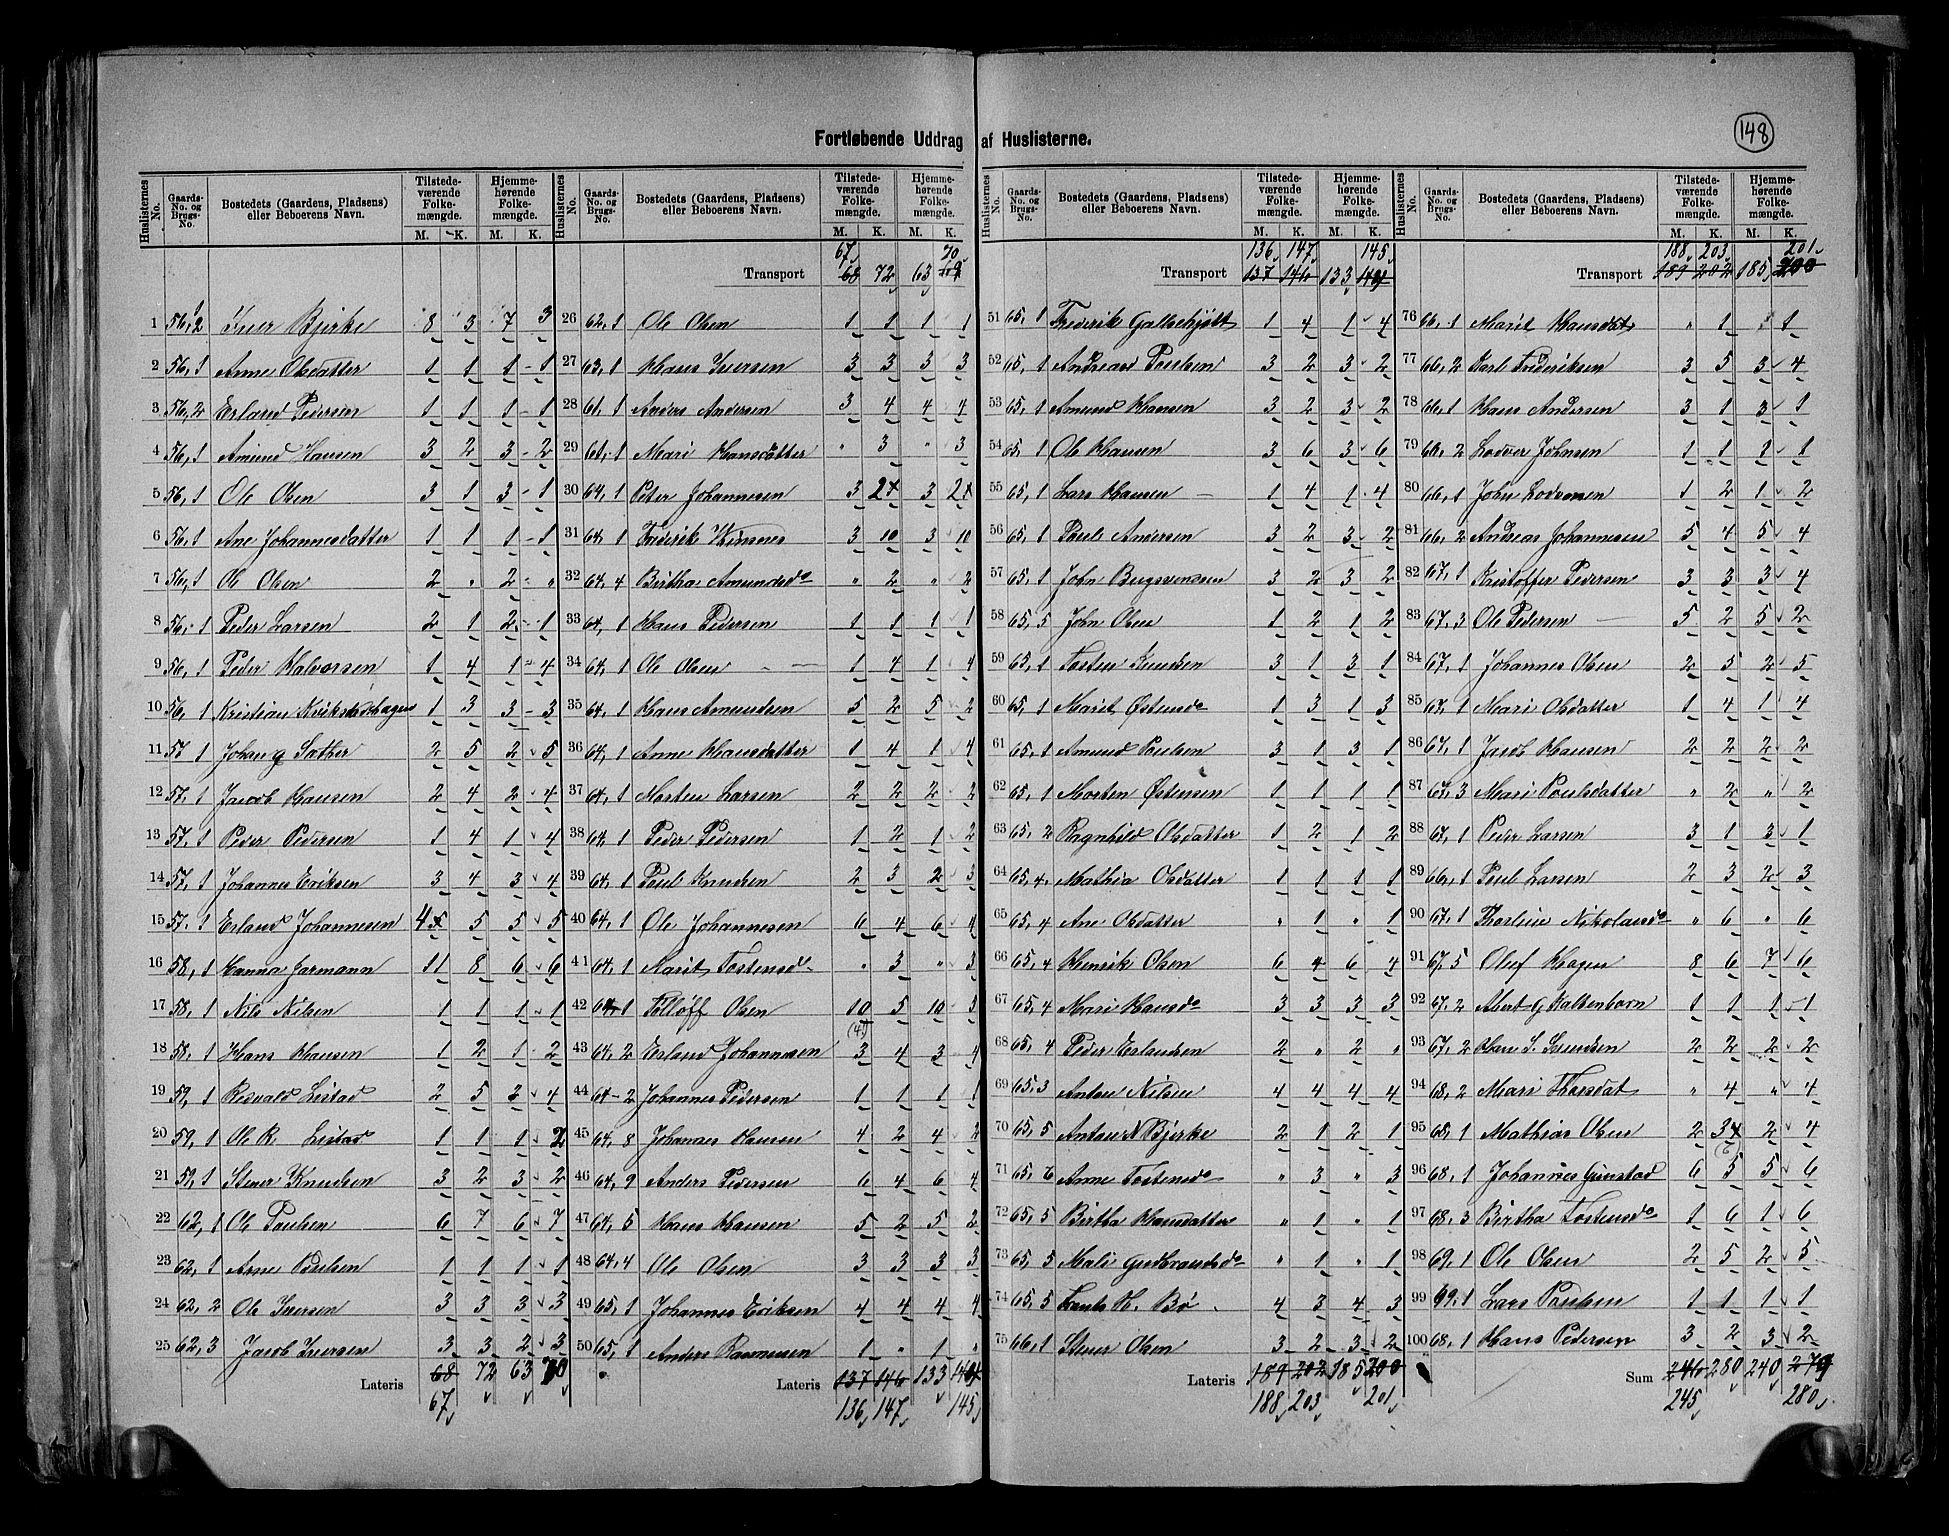 148
Fortløbende Uddrag af Huslisterne.
Huslisternes No. Gaards-No. og Brugs-No. Bostedets (Gaardens, Pladsens) eller Beboerens Navn. Tilstedeværende Folkemængde. M. K. Hjemmehørende Folkemængde. M. K.
1 56, 2 Iver Bjerke 8 3 7 3
2 56, 1 Anne Olsdatter 1 1 1 1
3 56, 2 Erland Pedersen 1 1 1 1
4 56, 1 Amund Hansen 3 2 3 2
5 56, 1 Ole Olsen 3 1 3 1
6 56, 1 Ane Johannesdatter 1 1 1 1
7 56, 1 Ole Olsen 2 " 2 "
8 56, 1 Peder Larsen 2 1 2 1
9 56, 1 Peder Halvorsen 1 4 1 4
10 56, 1 Kristian 1 3 3 3
11 57 1 Johan G Sæther 2 5 2 5
12 57, 1 Jacob Hansen 2 4 2 4
13 57, 1 Peder Pedersen 1 4 1 4
14 57, 1 Johannes Eriksen 3 4 3 4
15 57, 1 Erland Johannesen 4 5 5 5
16 58, 1 Hanna Jarmann 11 8 6 6
17 58, 1 Nils Nilsen 1 1 1 1
18 58, 1 Hans Hansen 1 2 1 2
19 59, 1 Listad 2 5 2 4
20 59, 1 Ole R. Listad 1 1 1 2
21 59, 1 Stener Knudsen 3 2 3 2
22 62, 1 Ole Paulsen 6 7 6 7
23 62, 1 Arne Paulsen 1 1 1 1
24 62, 2 Ole Iversen 3 3 3 3
25 62, 3 Jacob Iversen 3 3 2 3
Lateris 68 72 63 70
67
Huslisternes No. Gaards-No. og Brugs-No. Bostedets (Gaardens, Pladsens) eller Beboerens Navn. Tilstedeværende Folkemængde. M. K. Hjemmehørende Folkemængde. M. K.
67 70
Transport 68 72 63 69
26 62, 1 Ole Olsen 1 1 1 1
27 63, 1 Hans Iversen 3 3 3 3
28 61, 1 Anders Andersen 3 4 4 4
29 61, 1 Mari Hansdatter " 3 " 3
30 64, 1 Peter Johannesen 3 2 3 2
31 64, 1 Frederik 3 10 3 10
32 64, 4 Birtha Amundsd " 2 " 2
33 64, 1 Hans Pedersen 1 1 1 1
34 64, 1 Ole Olsen 1 4 1 4
35 64, 1 Hans Amundsen 5 2 5 2
36 64, 1 Anne Hansdatter 1 4 1 4
37 64, 1 Morten Larsen 2 2 2 2
38 64, 1 Peder Pedersen 1 2 1 2
39 64, 1 Paul Knudsen 2 3 2 3
40 64, 1 Ole Johannesen 6 4 6 4
41 64, 1 Marit Tostensd " 3 " 3
42 64, 1 Olsen 10 5 10 5
43 64, 2 Erland Johannesen (4) 3 4 3 4
44 64 - 2 Johannes Pedersen 1 1 1 1
45 64, 8 Johannes Hansen 4 2 4 2
46 64, 9 Anders Pedersen 6 4 6 4
47 64, 5 Hans Hansen 5 2 5 2
48 64, 4 Ole Olsen 3 3 3 3
49 65, 1 Johannes Eriksen 4 4 4 4
50 65, 1 Anders Rasmusen 1 " 1 "
Lateris 137 146 133 144
136 147 145
Huslisternes No. Gaards-No. og Brugs-No. Bostedets (Gaardens, Pladsens) eller Beboerens Navn. Tilstedeværende Folkemængde. M. K. Hjemmehørende Folkemængde. M. K.
136 147 145
Transport 137 146 133 144
51 65, 1 Frederik 1 4 1 4
52 65, 1 Andreas Poulsen 3 2 3 2
53 65, 1 Amund Hansen 3 2 3 2
54 65, 1 Ole Hansen 3 6 3 6
55 65, 1 Lars Hansen 1 4 1 4
56 65, 1 Paul Andersen 3 2 3 2
57 65, 1 John 3 2 3 2
58 65, 5 John Olsen 1 2 1 2
59 65, 1 Tosten Knudsen 3 1 3 1
60 65, 1 Marit Østensd 1 3 1 3
61 65, 1 Amund Poulsen 3 1 3 1
62 65, 1 Morten Østensen 1 1 1 1
63 65, 2 Ragnhild Olsdatter 1 2 1 2
64 65, 4 Mathia Olsdatter 1 1 1 1
65 65, 4 Ane Olsdatter " 1 " 1
66 65, 4 Henrik Olsen 6 4 6 4
67 65, 4 Mari Hansd 3 3 3 3
68 65, 4 Peder Erlandsen 2 " 2 "
69 65, 3 Anton Nilsen 4 4 4 4
70 65, 5 Anton N Bjerke 2 1 2 1
71 65, 6 Anne Tostensd " 3 " 3
72 65, 5 Birtha Hansdatter " 1 " 1
73 65, 5 Mali Gudbrandsd " 1 " 1
74 65, 5 Frants H. Bø 4 3 4 3
75 66, 1 Stener Olsen 3 2 3 2
Lateris 189 202 185 200
188 203 201
Huslisternes No. Gaards-No. og Brugs-No. Bostedets (Gaardens, Pladsens) eller Beboerens Navn. Tilstedeværende Folkemængde. M. K. Hjemmehørende Folkemængde. M. K.
188 203 201
Transport 189 202 185 200
76 66, 1 Marit Hansdat " 1 " 1
77 66, 2 Karl Frederiksen 3 5 3 4
78 66, 1 Hans Andersen 3 1 3 1
79 66, 2 Lodver Johnsen 1 1 1 1
80 66, 1 John Lodversen 1 2 1 2
81 66, 2 Andreas Johannesen 5 4 5 4
82 67, 1 Kristoffer Pedersen 3 3 3 4
83 67, 3 Ole Pedersen 5 2 5 2
84 67, 1 Johannes Olsen 2 5 2 5
85 67, 1 Mari Olsdatter 1 4 1 4
86 67, 1 Jacob Hansen 2 2 2 2
87 67, 3 Mari Poulsdatter " 2 " 2
88 67, 1 Peder Larsen 3 1 3 1
89 66, 1 Poul Larsen 2 3 2 3
90 67, 1 Nikolaisd " 6 " 6
91 67, 5 Oluf Hagen 8 6 7 6
92 67, 2 Albert G Kaltenborn 1 1 1 1
93 67, 2 2 2 2 2
94 68, 2 Mari Thorsdat " 4 " 4
95 68, 1 Mathias Olsen 2 3 2 4
96 68, 1 Johannes Grimstad 6 (6) 5 5 6
97 68, 3 Birtha Tostensd 1 6 1 6
98 69, 1 Ole Olsen 2 5 2 5
99 69, 1 Lars Poulsen 1 1 1 1
100 68, 1 Hans Pedersen 3 2 3 2
Sum 246 280 240 279
245 280